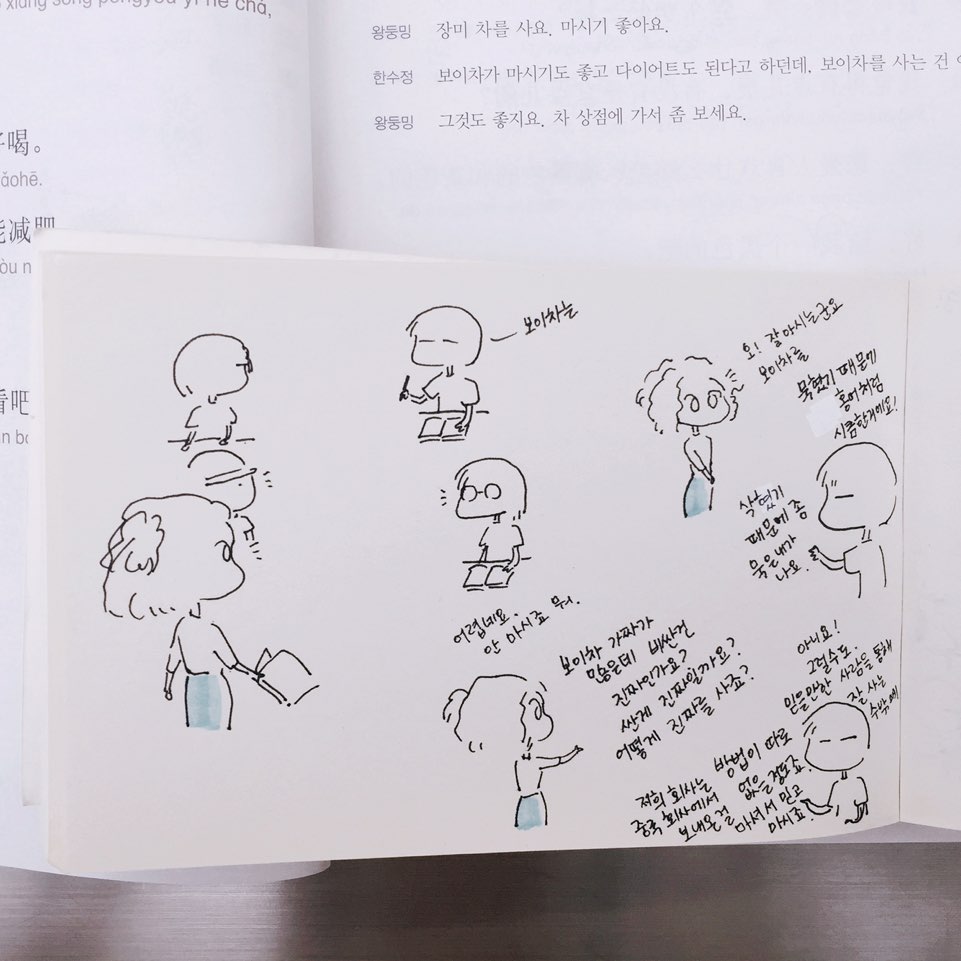 xiǎng sòng péngyou yì hé chá,
好喝。
hǎohē.
能减肥
看吧
왕둥밍 장미 차를 사요. 마시기 좋아요.
한수정 보이차가 마시기도 좋고 다이어트도 된다고 하던데. 보이차를 사는 건
왕둥밍 그것도 좋지요. 차 상점에 가서 좀 보세요.
보이차는
오! 잘아시는군요
보이차를
묵혔기 때문에
홍어처럼
시큼한거에요!
삭혔기
때문에 좀
묵은내가
나요.
어렵네요.
안 마시죠 뭐.
보이차 가짜가
많은데 비싼건
진짜인가요?
싼게 진짜일까요?
어떻게 진짜를 사죠?
아니요!
그럴수도
믿을만한 사람을 통해
잘 사는
수밖에
저희 회사는 방법이 따로
중국 회사에서 없을정도죠.
보내온걸 마셔서 믿고
마시죠.